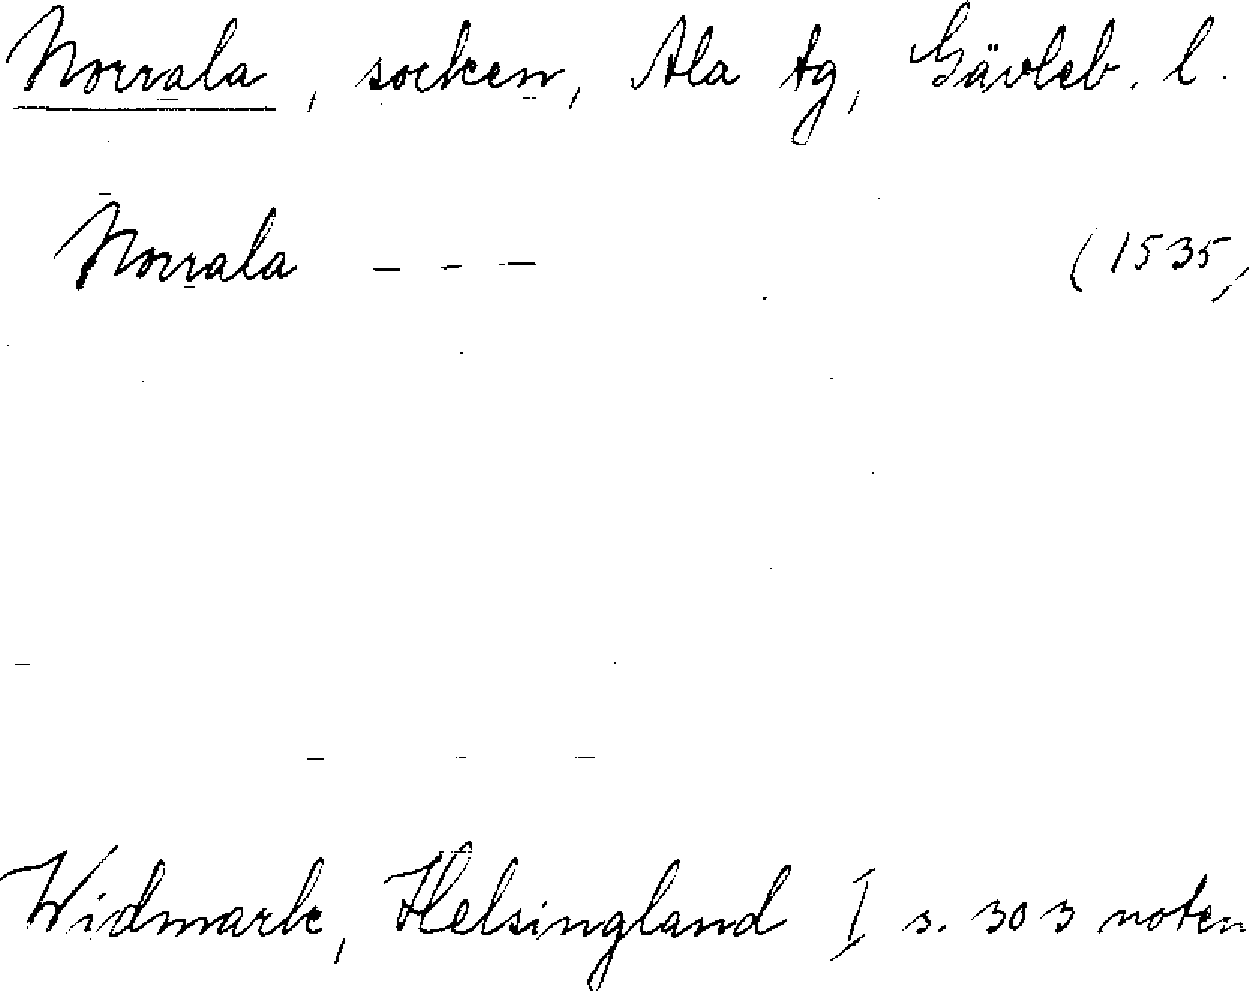 Norrala, socken, Ala tg, Gävleb. l.
Norrala - - - (1535,
Widmark, Helsingland I s. 303 noten